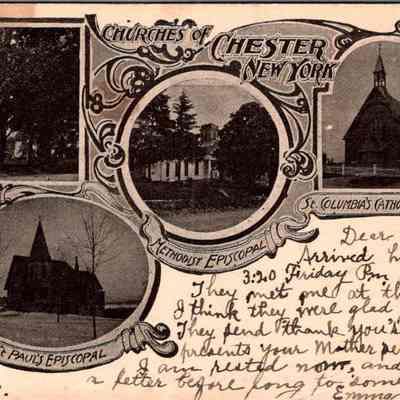 CHURCHES OF
CHESTER
NEW YORK
METHODIST EPISCOPAL
ST. COLUMBIA'S CATHO
ST PAUL'S EPISCOPAL
Dear
Arrived h
3:20 Firiday Pm
They met me at th
I think they were glad
They send "thank you's
presents your Mother se
I am rested now, and
a letter before long to some
Emma